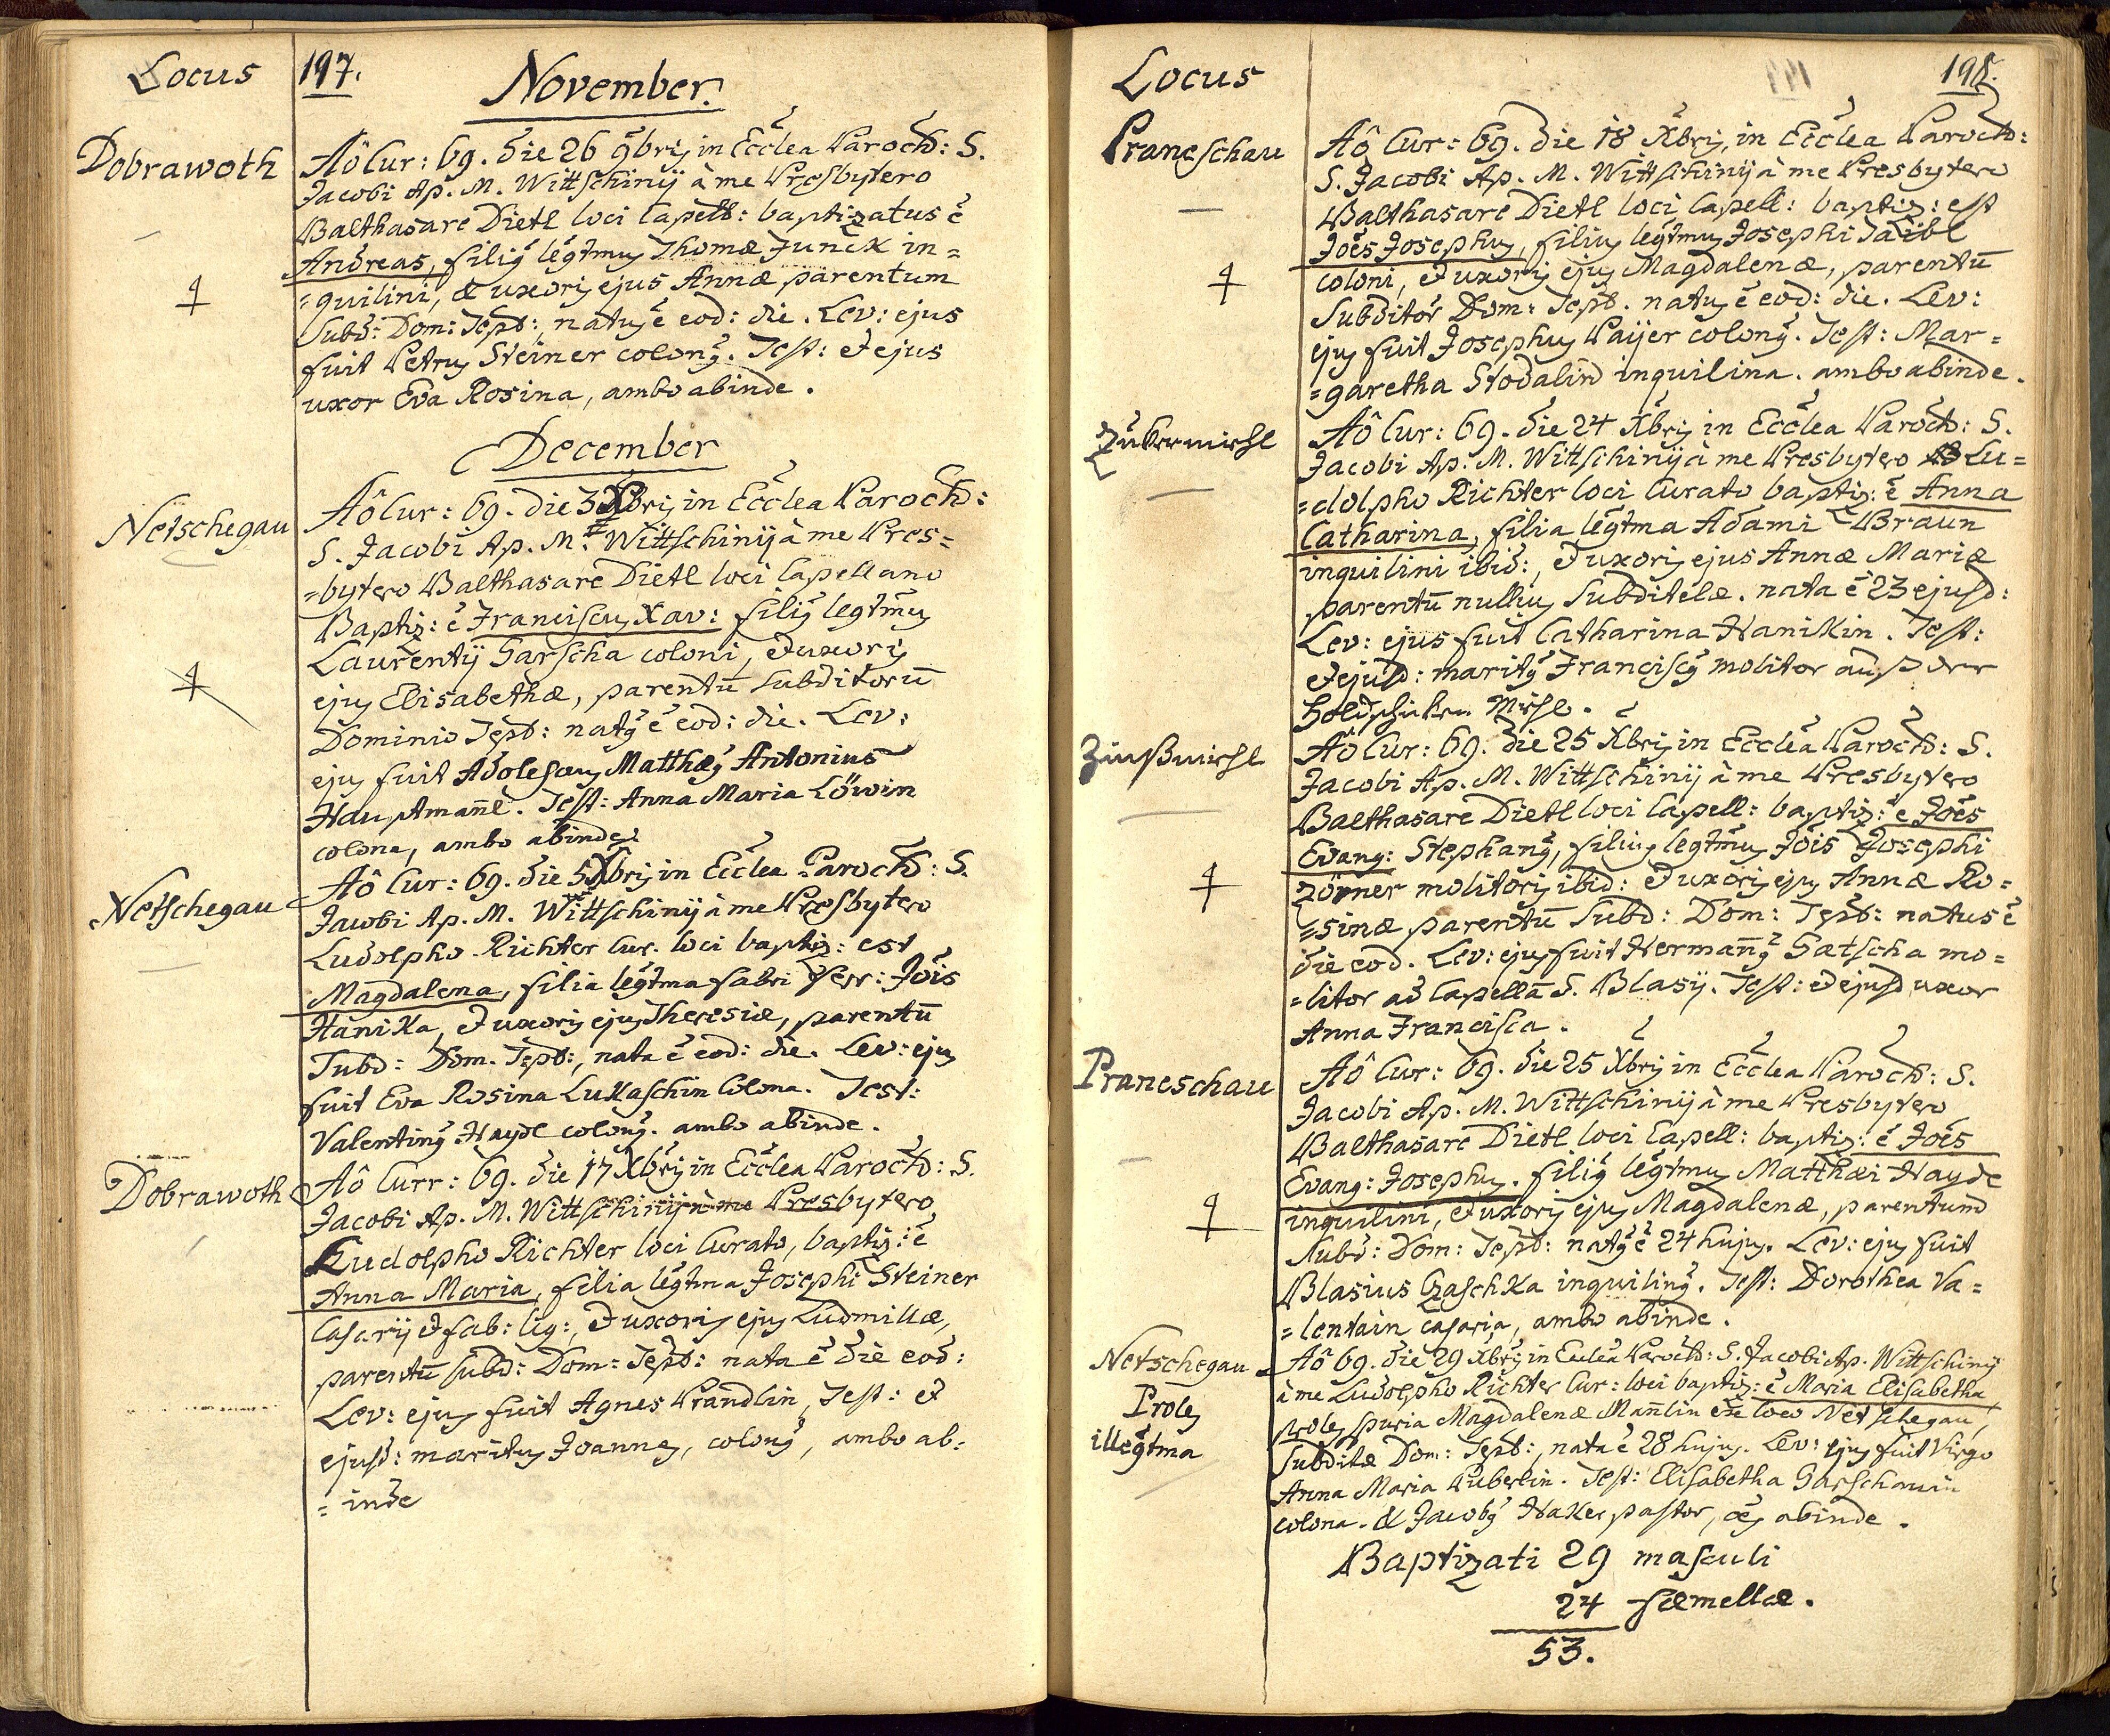 Locus
197.
November.
Dobrawoth
Aô Cur: 69. die 26 9bris in Ecclea Paroch: S.
Jacobi Ap. M. Wittschinij à me Presbytero
Balthasare Dietl loci Capell: baptizatus ē
Andreas, filig legtmus Thomæ Junck in=
=quilini, & uxoris ejus Annæ parentum
Subd: Dom: Tepl:, natus ē eod: die. Lev: ejus
fuit Petrus Steiner colong. Test: et ejus
uxor Eva Rosina, ambo abinde.
December
Netschegau
Aô Cur: 69. die 3 Xbris in Ecclea Paroch:
S. Jacobi Ap. M. Wittschinij à me Pres=
=bytero Balthasare Dietl loci Capellano
Baptiz: ē Franciscus Xav: filig legtmus
Laurentij Garscha coloni, et uxoris
ejus Elisabethæ, parentū subditorū
Dominio Tepl: natg ē eod: die. Lev:
ejus fuit Adolescens Matthæg Antonius
Hauptmañl. Test: Anna Maria Löwin
colona, ambo abinde.
Netschegau
Aô Cur: 69. die 5 Xbris in Ecclea Paroch: S.
Jacobi Ap. M. Wittschinij à me Presbytero
Ludolpho Richter Cur. loci baptiz: est
Magdalena, filia legtma fabri ferr: Jois
Hanika, et uxoris ejus Theresiæ, parentū
Subd: Dom. Tepl:, nata ē eod: die. Lev: ejus
fuit Eva Rosina Lukaschin Colona. Test:
Valenting Haydl colong. ambo abinde.
Dobrawoth
Aô Curr: 69. die 17 Xbris in Ecclea Paroch: S.
Jacobi Ap. M. Wittschinij à me Presbytero
Ludolpho Richter loci Curato, baptiz: ē
Anna Maria, filia legtma Josephi Steiner
Casarij et fab: lig:, et uxoris ejus Ludmillæ,
parentū subd: Dom: Tepl: nata ē die eod:
Lev: ejus fuit Agnes Prandlin, Test: et
ejusd: maritus Joannes, colong, ambo ab=
=inde
Locus
198.
Praneschau
Aô Cur: 69. die 18 Xbris, in Ecclea Paroch:
S. Jacobi Ap. M. Wittschinij à me Presbytero
Balthasare Dietl loci Capell: baptiz: est
Joes Josephus, filius legtmus Josephi Taübl
coloni, et uxoris ejus Magdalenæ, parentū
Subditor Dom: Tepl. natus ē eod: die. Lev:
ejus fuit Josephus Paijer colong. Test: Mar=
=garetha Stodalin inquilina. ambo abinde.
Aô Cur: 69. die 24 Xbris in Ecclea Paroch: S.
Jacobi Ap. M. Wittschinij à me Presbytero Lu=
=dolpho Richter loci Curato baptiz: ē Anna
Catharina, filia legtma Adami Braun
inquilini ibid:, et uxoris ejus Annæ Mariæ
parentū nullius subditelæ. nata ē 23 ejusd:
Lev: ejus fuit Catharina Hanikin. Test:
et ejusd: maritg Franciscg molitor auß der
Mihl.
Aô Cur: 69. die 25 Xbris in Ecclea Paroch: S.
Jacobi Ap. M. Wittschinij à me Presbytero
Balthasare Dietl loci Capell: baptiz: ē Joes
Evang: Stephang, filius legtmus Jois Josephi
Zörner molitoris ibid: et uxoris ejus Annæ Ro=
=sinæ parentū subd: Dom: Tepl: natus ē
die eod. Lev: ejus fuit Hermañg Gatscha mo=
=litor ad Capellā S. Blasij. Test: et ejusd uxor
Anna Francisca.
Praneschau
Aô Cur: 69. die 25 Xbris in Ecclea Paroch: S.
Jacobi Ap. M. Wittschinij à me Presbytero
Balthasare Dietl loci Capell: baptiz: ē Joes
Evang: Josephus. filig legtmus Matthæi Haydl
inquilini, et uxoris ejus Magdalenæ, parentum
subd: Dom: Tepl: natg ē 24 hujus. Lev: ejus fuit
Blasius Czaschka inquiling. Test: Dorothea Va=
=lentain casaria, ambo abinde.
Netschegau
Proles
illegtma
Aô 69. die 29 Xbris in Ecclea Paroch: S. Jacobi Ap. Wittschinij
à me Ludolpho Richter Cur: loci baptiz: ē Maria Elisabetha
proles spuria Magdalenæ Mañlin ex loco Netschegau,
subditæ Dom: Tepl:, nata ē 28 hujus. Lev: ejus fuit Virgo
Anna Maria Puberlin. Test: Elisabetha Garschauin
colona. & Jacobg Haker pastor, oēs abinde.
Baptizati 29 masculi
24 fæmellæ.
53.